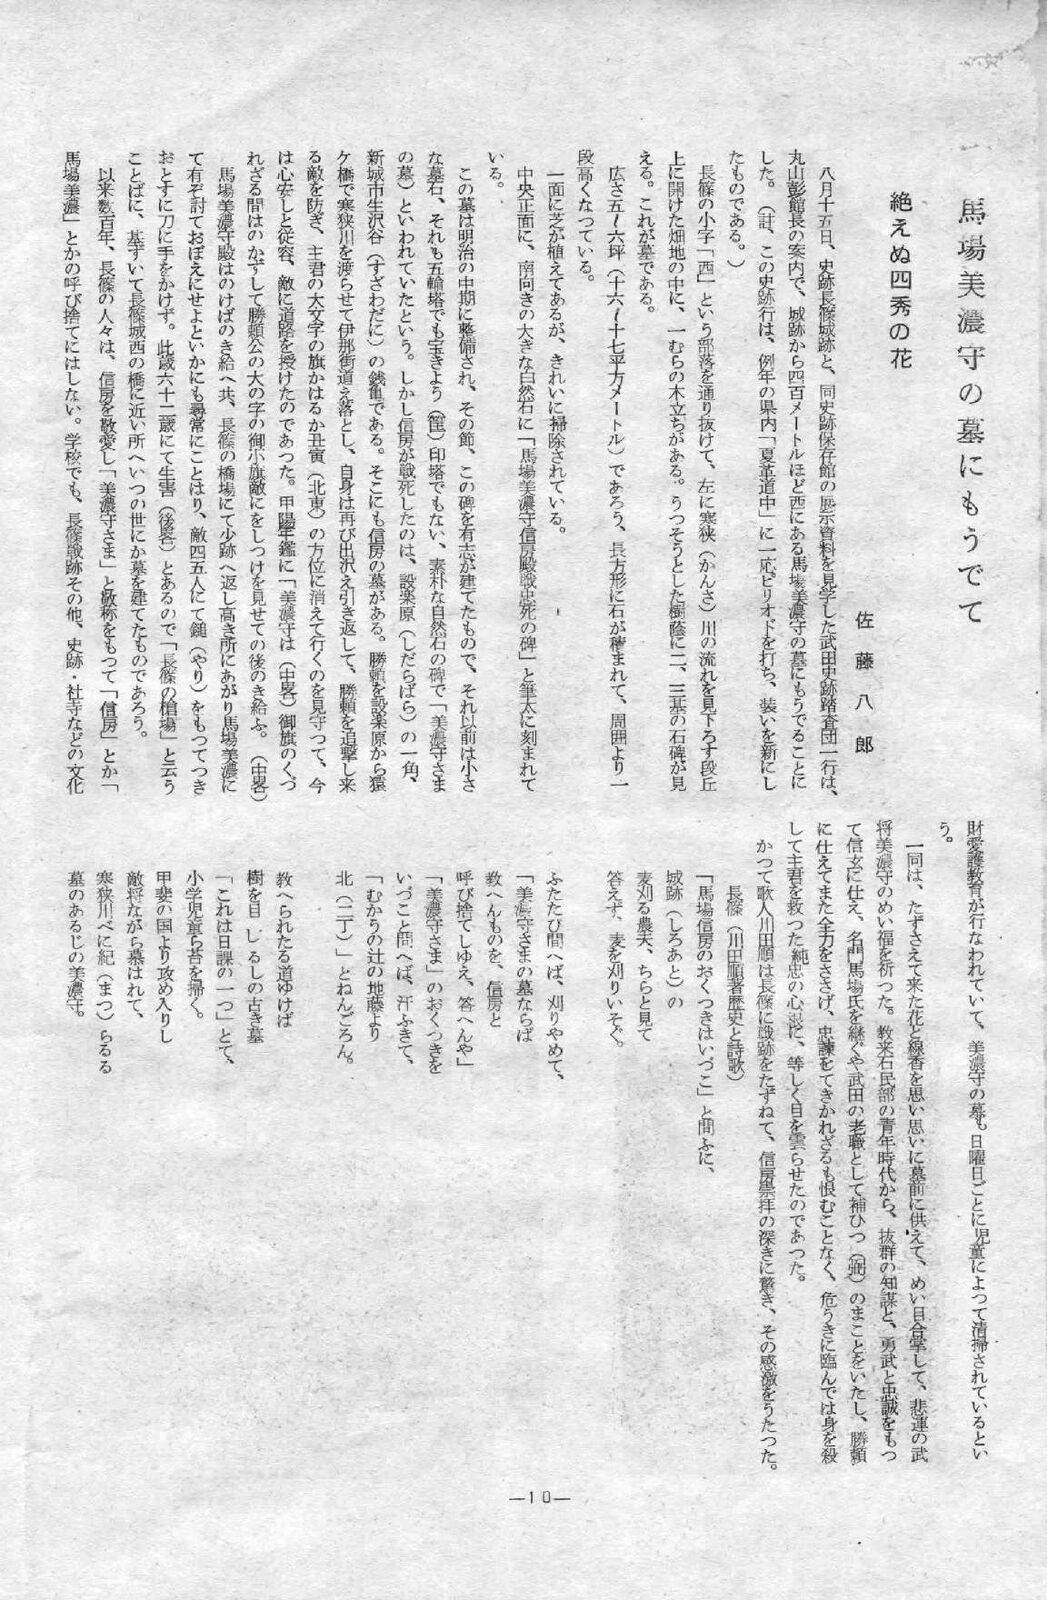 馬場美濃守の墓にもうでて
絶えぬ四秀の花
佐藤八郎
八月十五日、史跡長篠城跡と、同史跡保存館の展示資料を見学した武田史跡踏査団一行は、
丸山彭館長の案内で、城跡から四百メートルほど西にある馬場美濃守の墓にもうでることに
した。(註、この史跡行は、例年の県内「夏草道中」に一応ピリオドを打ち、装いを新にし
たものである。)
長篠の小字「西」という部落を通り抜けて、左に寒狭(かんさ)川の流れを見下ろす段丘
上に開けた畑地の中に、一むらの木立ちがある。うつそうとした樹蔭に二、三基の石碑が見
える。これが墓である。
広さ五〜六坪(十六〜十七平方メートル)であろう、長方形に石が積まれて、周囲より一
段高くなつている。
一面に芝が植えてあるが、きれいに掃除されている。
中央正面に、南向きの大きな自然石に「馬場美濃守信房殿戦忠死の碑」と筆太に刻まれて
いる。
この墓は明治の中期に整備され、その節、この碑を有志が建てたもので、それ以前は小さ
な墓石、それも五輪塔でも宝きよう(筐)印塔でもない、素朴な自然石の碑で「美濃守さま
の墓)といわれていたという。しかし信房が戦死したのは、設楽原(しだらばら)の一角、
新城市生沢谷(すざわだに)の銭亀である。そこにも信房の墓がある。勝頼を設楽原から猿
ケ橋で寒狭川を渡らせて伊那街道え落とし、自身は再び出沢え引き返して、勝頼を追撃し来
る敵を防ぎ、主君の大文字の旗かはるか丑寅(北東)の方位に消えて行くのを見守つて、今
は心安しと従容、敵に道路を授けたのであつた。甲陽年鑑に「美濃守は(中畧)御旗のくつ
れざる間はのかずして勝頼公の大の字の御小旗敵にをしつけを見せての後のき給ふ。(中畧)
馬場美濃守殿はのけばのき給へ共、長篠の橋場にて少跡へ返し高き所にあがり馬場美濃に
て有ぞ討ておぼえにせよといかにも尋常にことはり、敵四五人にて鎚(やり)をもつてつき
おとすに刀に手をかけず。此歳六十二歳にて生害(後畧)とあるので「長篠の橋場」と云う
ことばに、基ずいて長篠城西の橋に近い所へいつの世にか墓を建てたものであろう。
以来数百年、長篠の人々は、信房を敬愛し「美濃守さま」と敬称をもつて「信房」とか「
馬場美濃」とかの呼び捨てにはしない。学校でも、長篠戦跡その他、史跡・社寺などの文化
財愛護教育が行なわれていて、美濃守の墓も日曜日ごとに児童によつて清掃されているとい
う。
一同は、たずさえて来た花と線香を思い思いに墓前に供えて、めい目合掌して、悲運の武
将美濃守のめい福を祈つた。教来石民部の青年時代から、抜群の知謀と、勇武と忠誠をもつ
て信玄に仕え、名門馬場氏を継ぐや武田の老職として補ひつ(弼)のまことをいたし、勝頼
に仕えてまた全力をささげ、忠諫をてきかれざるも恨むことなく、危うきに臨んでは身を殺
して主君を救つた純忠の心に、等しく目を雲らせたのであつた。
かつて歌人川田順は長篠に戦跡をたずねて、信房崇拝の深きに驚き、その感激をうたつた。
長篠(川田順著歴史と詩歌)
「馬場信房のおくつきはいづこ」と間ふに、
城跡(しろあと)の
麦刈る農夫、ちらと見て
答えず、麦を刈りいそぐ。
ふたたび間へば、刈りやめて、
「美濃守さまの墓ならば
教へんものを、信房と
呼び捨てしゆえ、答へんや」
「美濃守さま」のおくつきを
いづこと問へば、汗ふきて、
「むかうの辻の地藤より
北(二丁)」とねんごろん。
教へられたる道ゆけば
樹を目じるしの古き墓
「これは日課の一つ」とて、
小学児童ら苔を掃く。
甲斐の国より攻め入りし
敵将ながら慕はれて、
寒狭川べに紀(まつ)らるる
墓のあるじの美濃守。
—10—